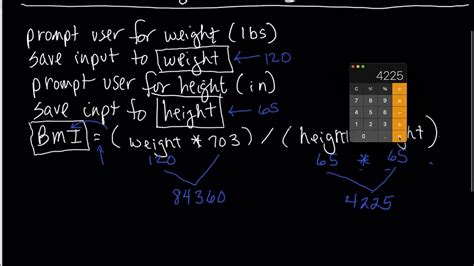 prompt user for weight (lbs)
save input to weight ← 120
prompt user for height (in)
save inpt to height ← 65
BmI = (weight * 703) / (height ght)
120 65 * 65
84360 4225
4225
C % ÷
7 8 9 ×
4 5 6 -
1 2 3 +
0 . =